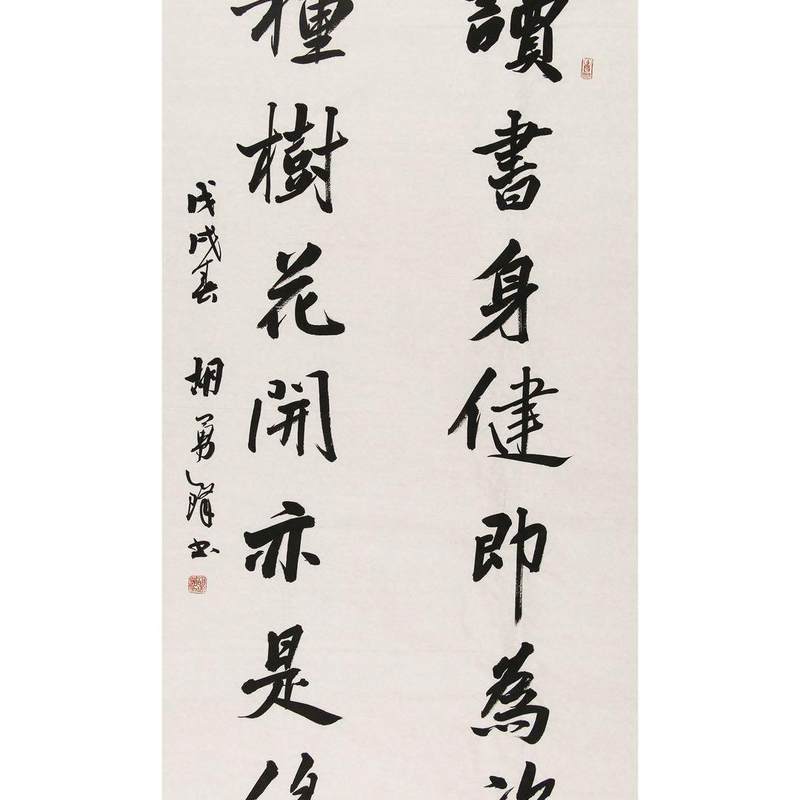 讀書身健即為
種樹花開亦是
戊戌春 胡勇